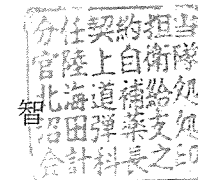 分任契約担当
官陸上自衛隊
北海道補給処
智
沼田弾薬支処
会計科長之印